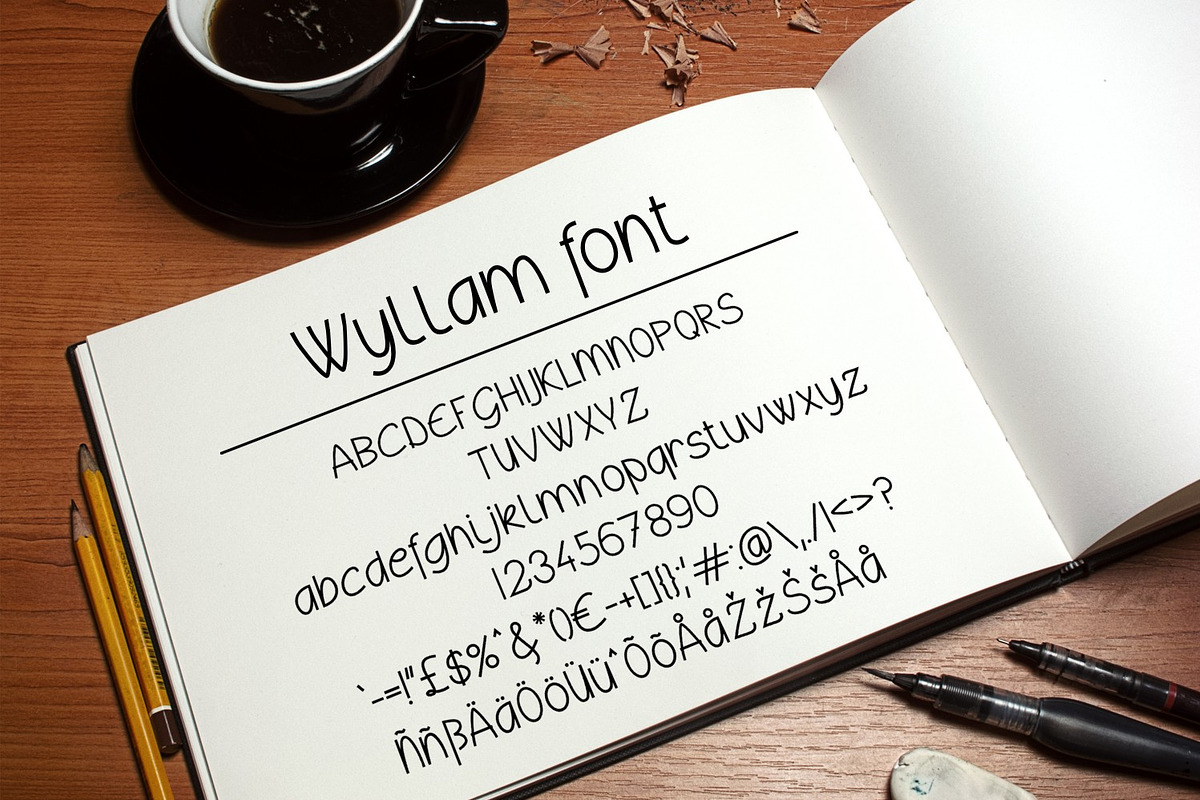 Wyllam font
ABCDEFGHIJKLMNOPQRS
TUVWXYZ
abcdefghijklmnopqrstuvwxyz
1234567890
`-=!"£$%^&*()€-+[]{};'#:@\,./|<>?
ññβÄäÖöÜüˆÕõÅåŽžŠšÅå